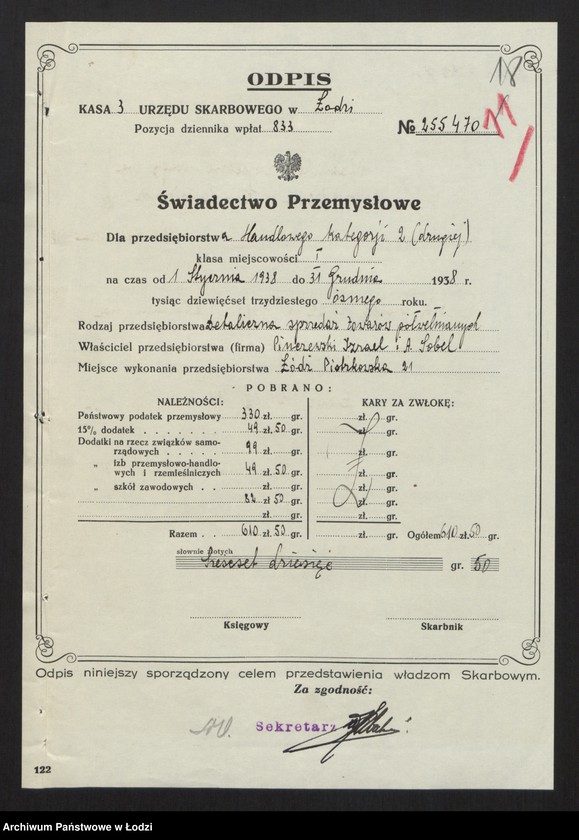 18
ODPIS
KASA 3 URZĘDU SKARBOWEGO w Łodzi
Pozycja dziennika wpłat 833
№ 255470
Świadectwo Przemysłowe
Dla przedsiębiorstwa Handlowego kategorji 2 (drugiej)
klasa miejscowości I
na czas od 1 Stycznia 1938 do 31 Grudnia 1938 r.
tysiąc dziewięćset trzydziestego ósmego roku.
Rodzaj przedsiębiorstwa Detaliczna sprzedaż towarów półwełnianych
Właściciel przedsiębiorstwa (firma) Pinczewski Izrael i A. Sobel
Miejsce wykonania przedsiębiorstwa Łódź Piotrkowska 21
POBRANO:
NALEŻNOŚCI: KARY ZA ZWŁOKĘ:
Państwowy podatek przemysłowy 330 zł. gr. zł. gr.
15% dodatek 49 zł. 50 gr. zł. gr.
Dodatki na rzecz związków samo-
rządowych 99 zł. gr. zł. gr.
„ izb przemysłowo-handlo-
wych i rzemieślniczych 49 zł. 50 gr. zł. gr.
„ szkół zawodowych zł. gr. zł. gr.
82 zł 50 gr. zł. gr.
zł. gr. zł. gr.
Razem 610 zł. 50 gr. zł. gr. Ogółem 610 zł. 50 gr.
słownie złotych
Sześćset dziesięć gr. 50
Księgowy Skarbnik
Odpis niniejszy sporządzony celem przedstawienia władzom Skarbowym.
Za zgodność:
Sekretarz
122
Archiwum Państwowe w Łodzi